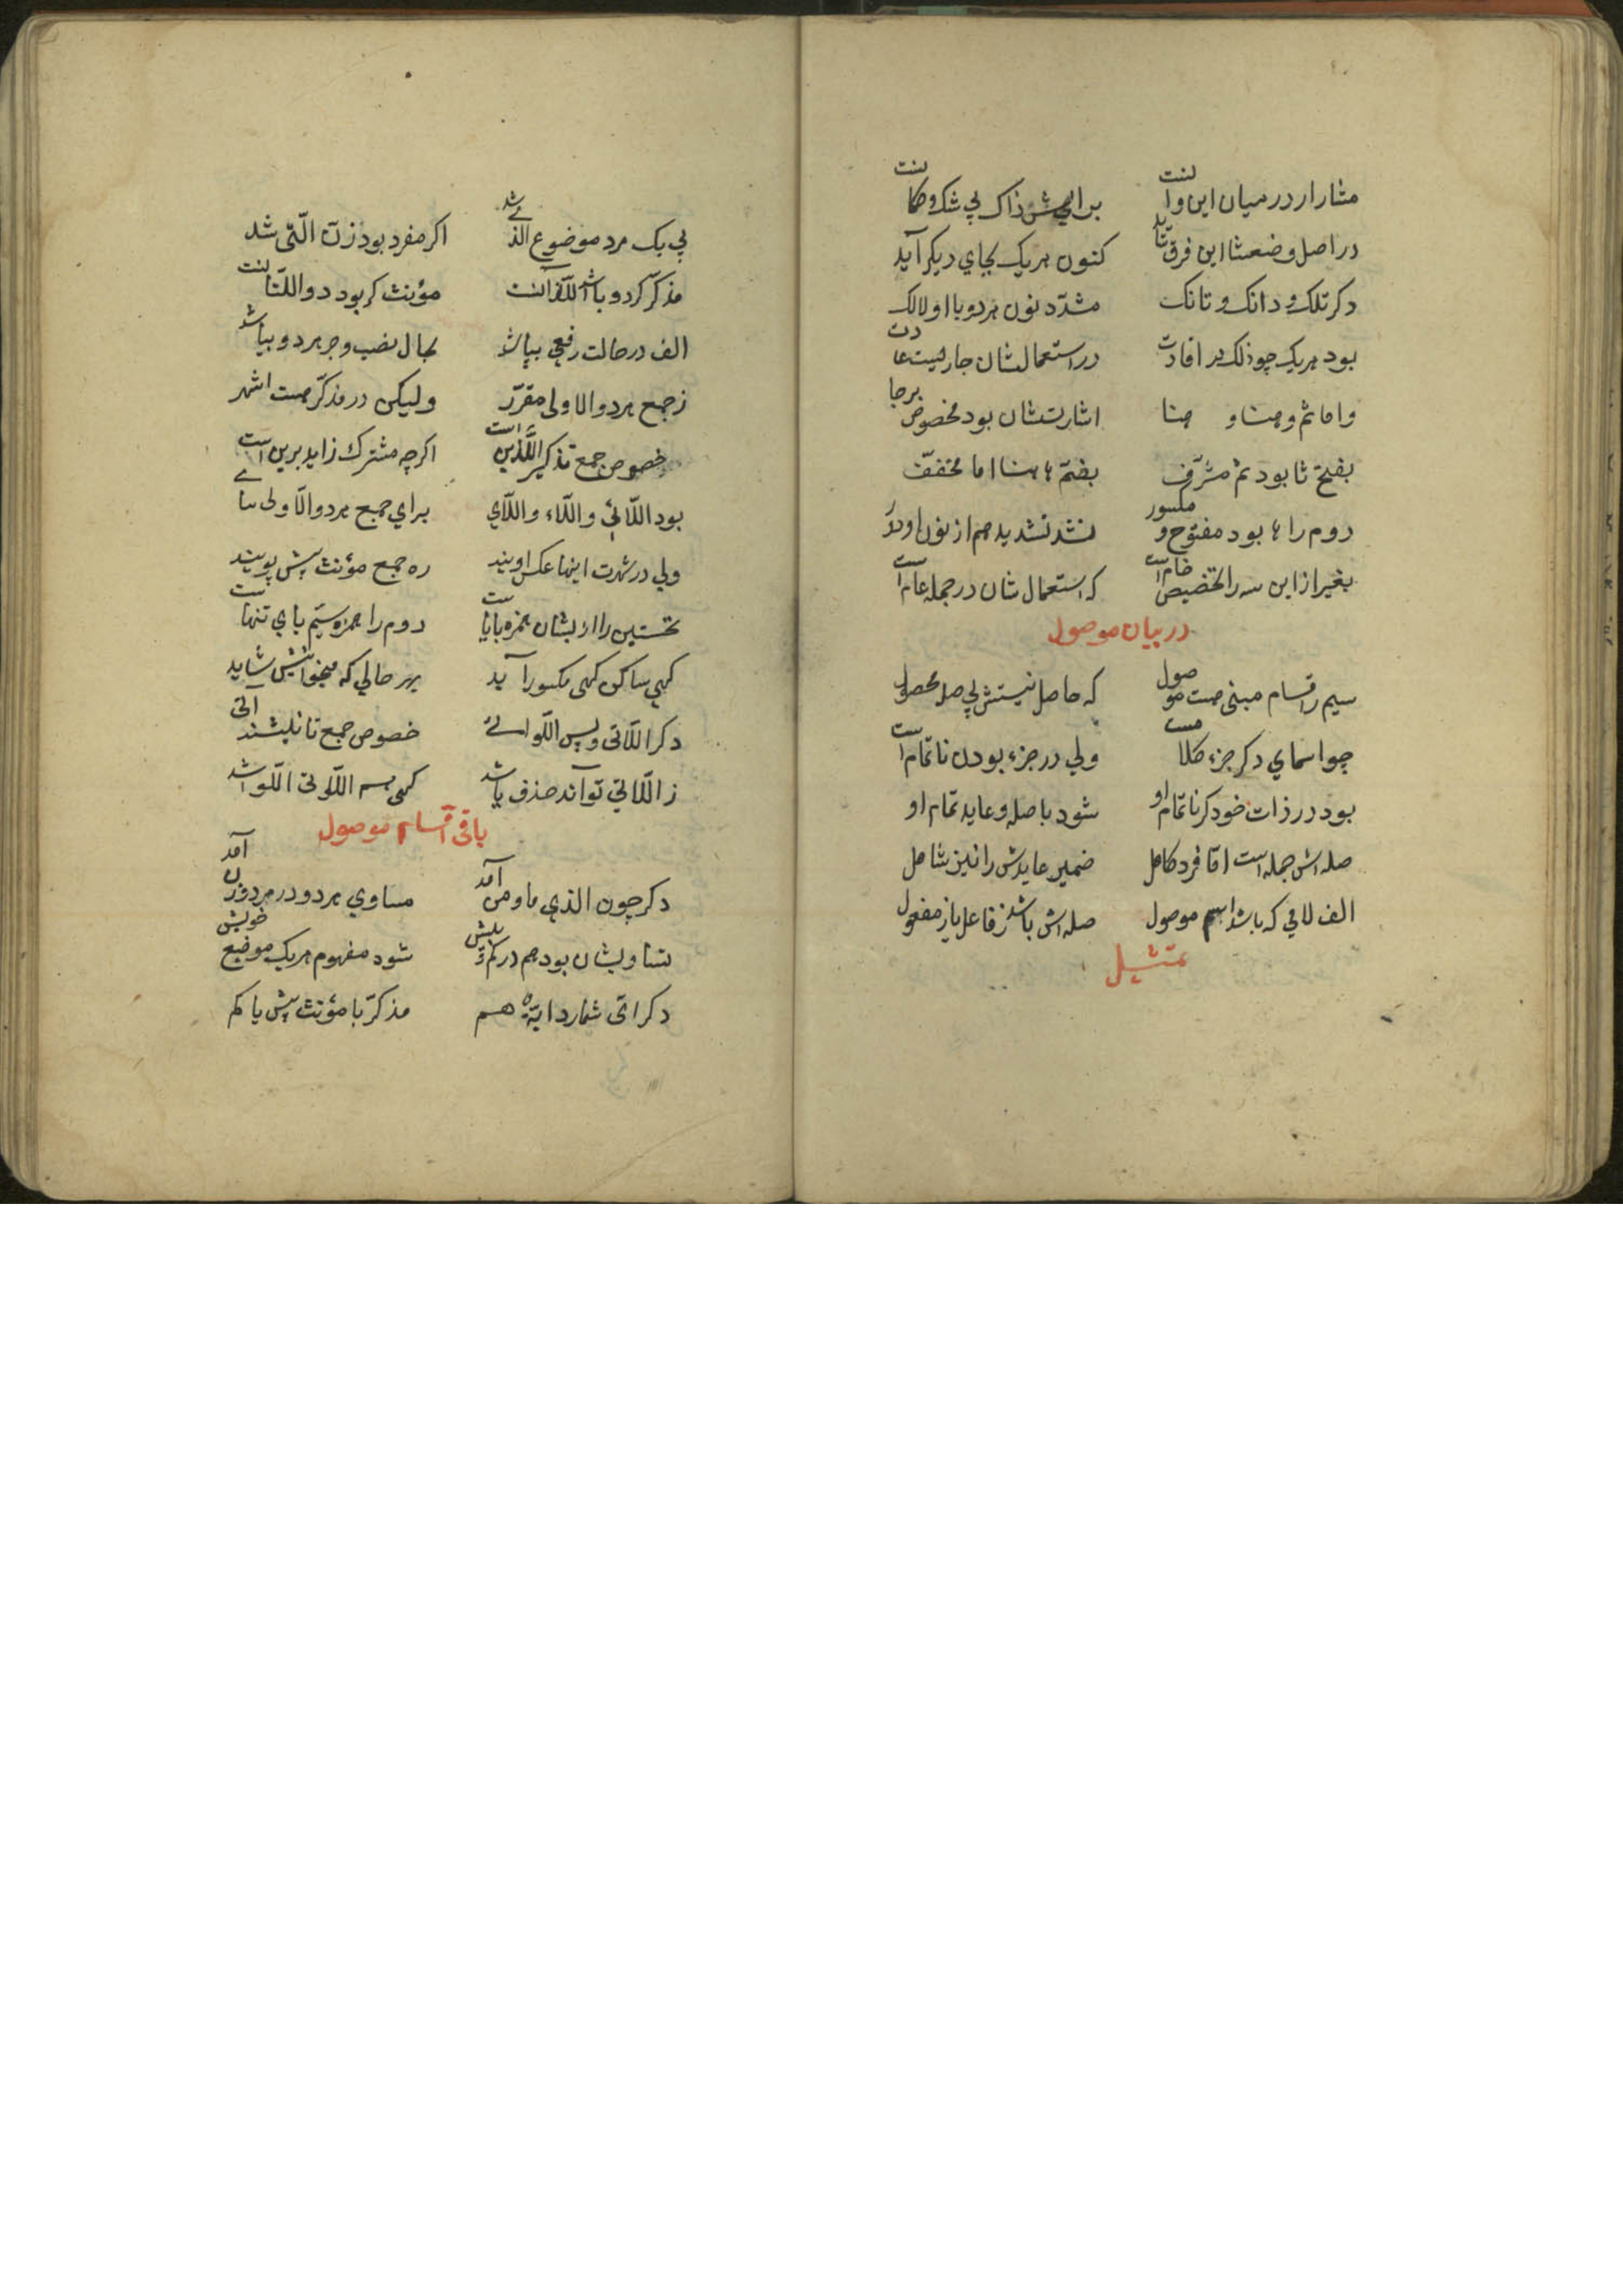 مشارار در میان این و آنست برایش ذاک بی شک و کمانست
در اصل وضعشا این فرق شاید کنون هریک بجای دیکر آید
دکر تلک و ذانک و تانک مشدّد نون هردو با اولالک
بود هریک چو ذلک در افادت در استعمالشان جاریست عادت
و اما ثم و هنا و هنا اشارتشان بود مخصوص برجا
بفتح ثا بود ثم مشرّف بضمّ ها هنا اما مخففّ
دوم را ها بود مفتوح و مکسور نشد تشدید هم از نون او دور
بغیر از این سه را تخصیص خام است که استعمالشان در جمله عام است
در بیان موصول
سیم ز اقسام مبنی هست موصول که حاصل نیستش بی صله محصول
چو اسمای دکر جزء کلامست ولی در جزء بودن ناتمام است
بود در ذات خود کر ناتمام او شود با صله و عاید تمام او
صله اش جمله است اما فرد کامل ضمیر عایدش را نیز شامل
الف لامی که باشد اسم موصول صله اش باشد ز فاعل یا ز مفعول
تمثیل
پی یک مرد موضوع الذی شد اکر مفرد بود زن الّتی شد
مذکّر کر دو باشد اللّذانست مؤنث کر بود دو اللّتانست
الف در حالت رفعی بپاشد بحال نصب و جر هر دو بیا شد
ز جمع هر دو الاولی مقرّر ولیکن در مذکّر هست اشهر
خصوص جمع تذکیر اللَّذین است اکرچه مشترک زاید برین است
بود اللّائی و اللّاء و اللّای برای جمع هر دو الّاولی سای
ولی در شهرت اینها عکس اویند ره جمع مؤنث پیش پویند
نخستین را از ایشان همزه با یاست دوم را همزه سیّم یای تنهاست
کهی ساکن کهی مکسور آید بهر حالی که میخوانیش شاید
دکر اللّاتی و پس اللّواتی خصوص جمع تانیثند آتی
ز اللّاتی تواند حذف یا شد کهی هم اللّوتی اللّوا شد
باقی اقسام موصول
دکر چون الذی ما و من آمد مساوی هر دو در مرد و زن آمد
تساویشان بود هم در کم و بیش شود مفهوم هریک موضع خویش
دکر ایّ شمارد ایّة هم مذکّر با مؤنث پیش یا کم